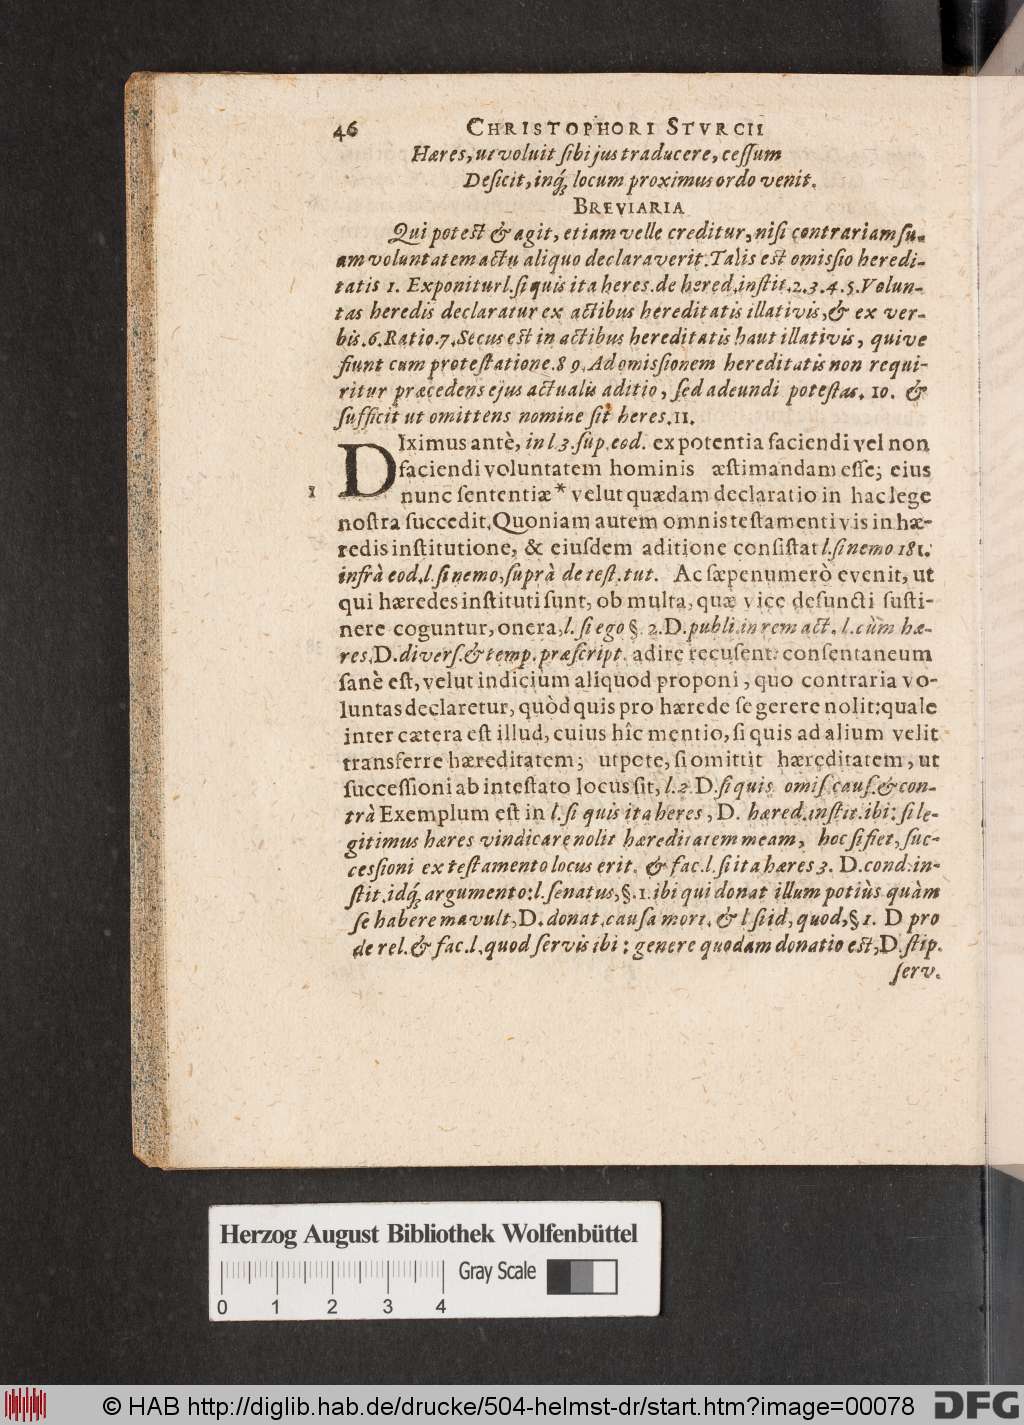 46 CHRISTOPHORI STVRCII
Hæres, ut voluit sibi jus traducere, cessum
Deficit, inq́; locum proximus ordo venit.
BREVIARIA
Qui potest & agit, etiam velle creditur, nisi contrariam su-
am voluntatem actu aliquo declaraverit. Talis est omissio heredi-
tatis 1. Exponitur l. si quis ita heres. de hered. instit. 2. 3. 4. 5. Volun-
tas heredis declaratur ex actibus hereditatis illativis, & ex ver-
bis. 6. Ratio. 7. Secus est in actibus hereditatis haut illativis, quive
fiunt cum protestatione. 8 9. Ad omissionem hereditatis non requi-
ritur præcedens ejus actualis aditio, sed adeundi potestas. 10. &
sufficit ut omittens nomine sit heres. 11.
DIximus antè, in l. 3. sup. eod. ex potentia faciendi vel non
faciendi voluntatem hominis æstimandam esse; eius
1 nunc sententiæ * velut quædam declaratio in hac lege
nostra succedit. Quoniam autem omnis testamenti vis in hæ-
redis institutione, & eiusdem aditione consistat l. si nemo 181.
infrà eod. l. si nemo, suprà de test. tut. Ac sæpenumerò evenit, ut
qui hæredes instituti sunt, ob multa, quæ vice defuncti susti-
nere coguntur, onera, l. si ego §. 2. D. publi. in rem act. l. cùm hæ-
res. D. divers. & temp. præscript. adire recusent: consentaneum
sanè est, velut indicium aliquod proponi, quo contraria vo-
luntas declaretur, quòd quis pro hærede se gerere nolit: quale
inter cætera est illud, cuius hîc mentio, si quis ad alium velit
transferre hæreditatem; utpote, si omittit hæreditatem, ut
successioni ab intestato locus sit, l. 2. D. si quis omis. caus. & con-
trà Exemplum est in l. si quis ita heres, D. hæred. instit. ibi: si le-
gitimus hæres vindicare nolit hæreditatem meam, hoc si fiet, suc-
cessioni ex testamento locus erit. & fac. l. si ita hæres 3. D. cond. in-
stit. idq́; argumento: l. senatus, §. 1. ibi qui donat illum potiùs quàm
se habere mavult, D. donat. causa mort. & l si id, quod, § 1. D pro
de rel. & fac. l. quod servis ibi: genere quodam donatio est, D. stip.
serv.
Herzog August Bibliothek Wolfenbüttel
Gray Scale
0 1 2 3 4
© HAB http://diglib.hab.de/drucke/504-helmst-dr/start.htm?image=00078 DFG